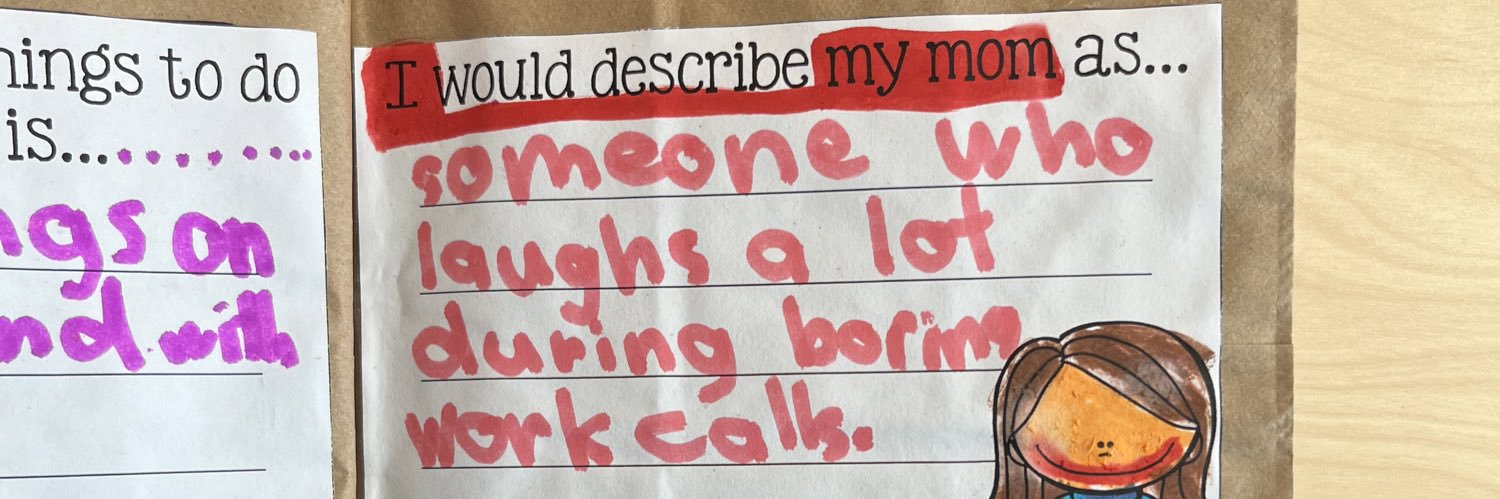 things to do
is...
ngs on
nd with
I would describe my mom as...
someone who
laughs a lot
during boring
work calls.